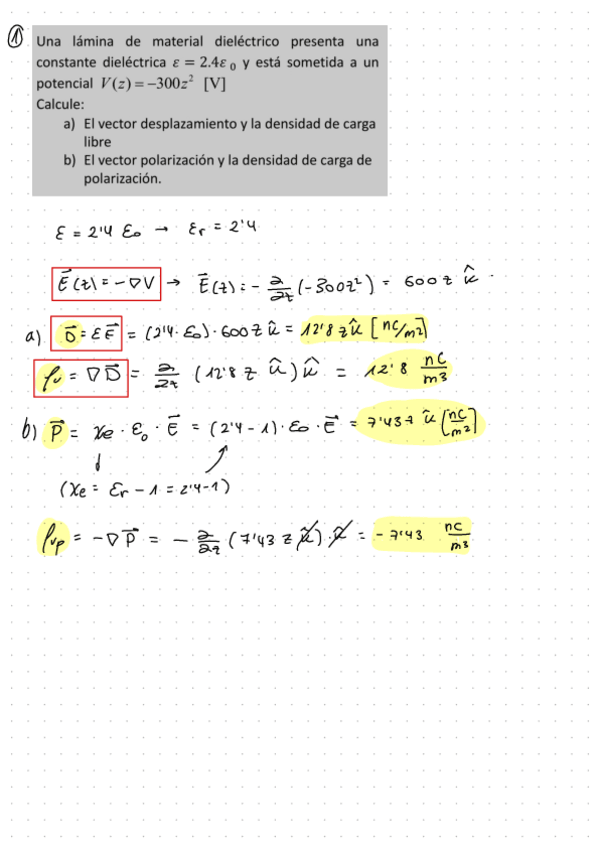 ①
Una lámina de material dieléctrico presenta una
constante dieléctrica ε = 2.4ε₀ y está sometida a un
potencial V(z) = −300z² [V]
Calcule:
a) El vector desplazamiento y la densidad de carga
libre
b) El vector polarización y la densidad de carga de
polarización.
ε = 2'4 ε₀ → εr = 2'4
E⃗(z) = −∇V → E⃗(z) = − ∂/∂z (−300z²) = 600 z û .
a) D⃗ = εE⃗ = (2'4·ε₀)·600 z û = 12'8 z û [nC/m²]
ρv = ∇D⃗ = ∂/∂z (12'8 z û) û = 12'8 nC/m³
b) P⃗ = χe · ε₀ · E⃗ = (2'4 − 1)·ε₀·E⃗ = 7'43 z û [nC/m²]
(χe = εr − 1 = 2'4−1)
ρvp = −∇P⃗ = − ∂/∂z (7'43 z û)·û = − 7'43 nC/m³